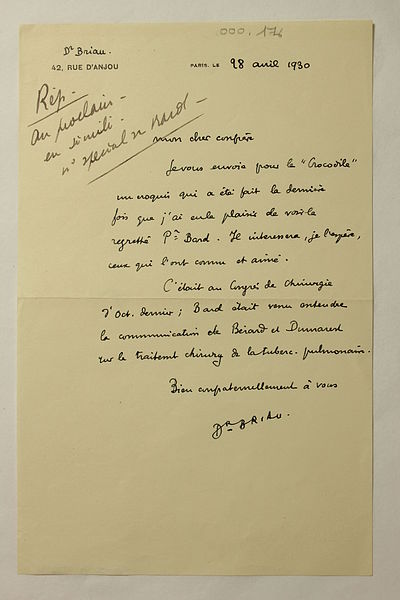 000.174
Dr Briau.
42, RUE D'ANJOU
PARIS, LE 28 avril 1930
Rép.
au prochain
en simili.
n° spécial Bard
mon cher confrère
Je vous envoie pour le "Crocodile"
un croquis qui a été fait la dernière
fois que j'ai eu le plaisir de voir le
regretté Pr Bard. Il intéressera, je l'espère,
ceux qui l'ont connu et aimé.
C'était au Congrès de Chirurgie
d'Oct. dernier ; Bard était venu entendre
la communication de Bérard et Dumarest
sur le traitemt chirurg de la tuberc. pulmonaire.
Bien confraternellement à vous
Dr BRIAU.